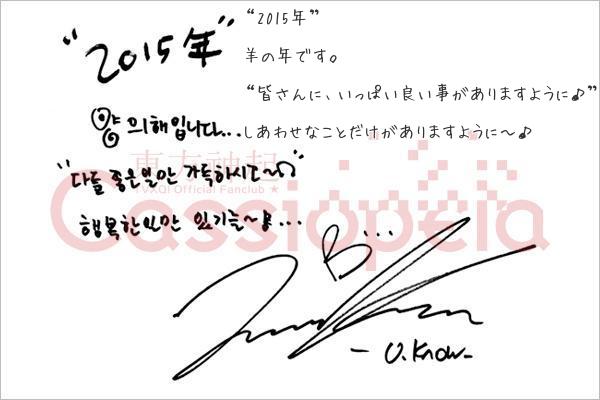 “2015年”
“2015年”
羊の年です。
“皆さんに、いっぱい良い事がありますように♪”
양의해입니다...
しあわせなことだけがありますように〜♪
東方神起
TVXQ! Official Fanclub ★
Cassiopeia
“다들 좋은일만 가득하시도~♫”
행복한일만 있기를~양...
- U.Know-